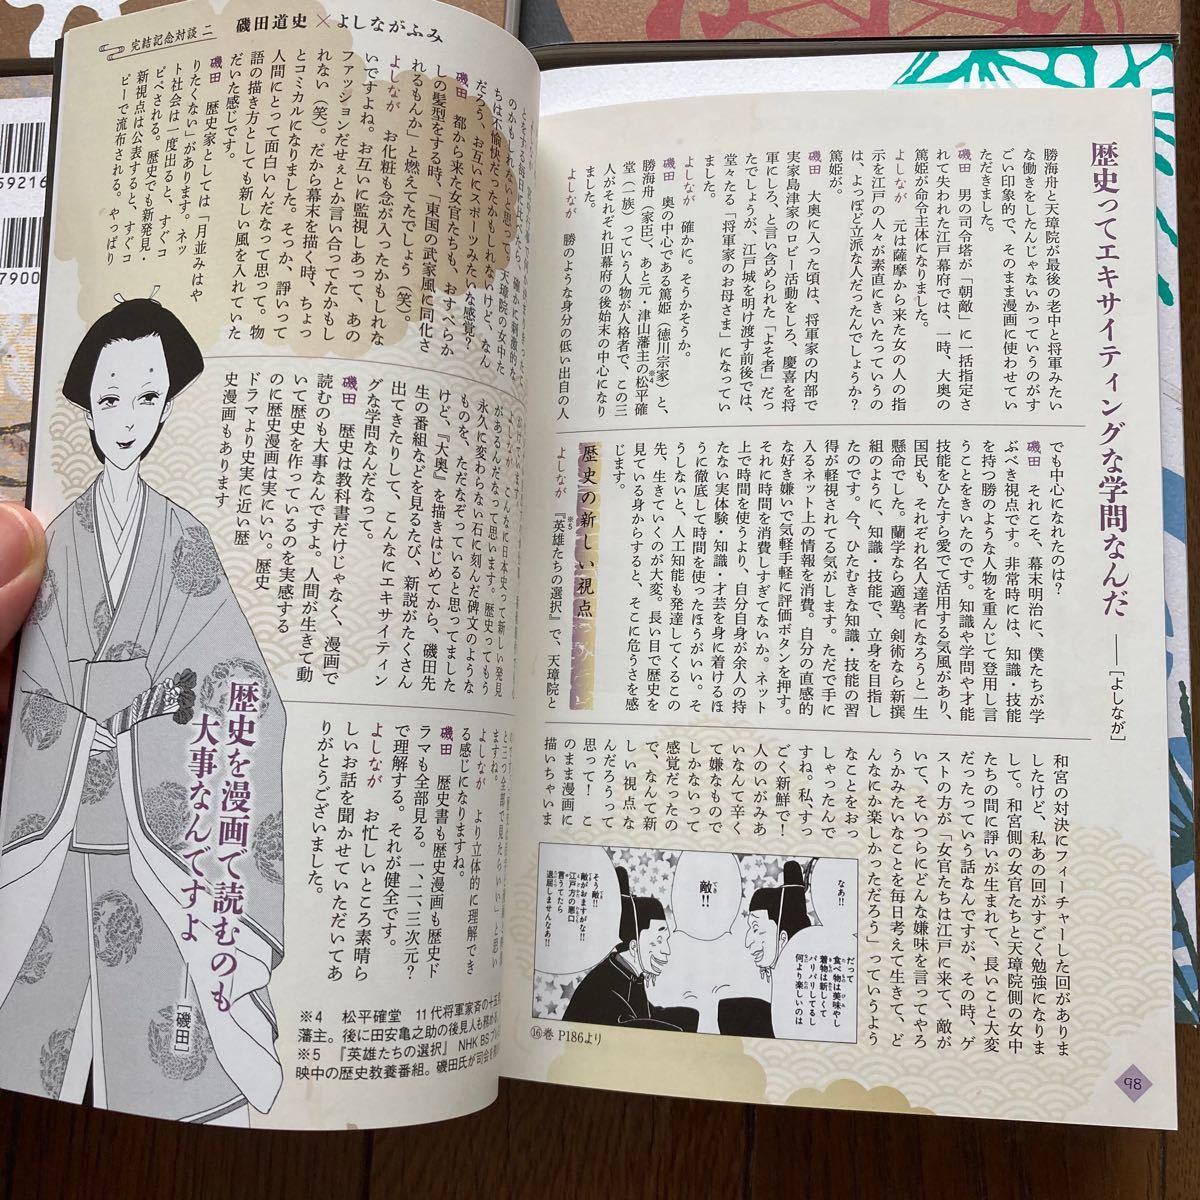 歴史ってエキサイティングな学問なんだ ──［よしなが］
勝海舟と天璋院が最後の老中と将軍みたい
な働きをしたんじゃないかっていうのがす
ごい印象的で、そのまま漫画に使わせてい
ただきました。
磯田　男の司令塔が「朝敵」に一括指定さ
れて失われた江戸幕府では、一時、大奥の
篤姫が命令主体になりました。
よしなが　元は薩摩から来た女の人の指
示を江戸の人々が素直にきいたっていうの
は、よっぽど立派な人だったんでしょうか？
篤姫が。
磯田　大奥に入った頃は、将軍家の内部で
実家島津家のロビー活動をしろ、慶喜を将
軍にしろ、と言い含められた「よそ者」だっ
たのですが、江戸城を明け渡す前後では、
堂々たる「将軍家のお母さま」になってい
ました。
よしなが　確かに。そうかそうか。
磯田　奥の中心である篤姫（徳川宗家）と、
勝海舟（家臣）、あと元・津山藩主の松平確
堂※4（一族）っていう人物が人格者で、この三
人がそれぞれ旧幕府の後始末の中心になり
ました。
よしなが　勝のような身分の低い出自の人
でも中心になれたのは？
磯田　それこそ、幕末明治に、僕たちが学
ぶべき視点です。非常時には、知識・技能
を持つ勝のような人物を重んじて登用し言
うことをきいたのです。知識や学問や才能
技能をひたすら愛でて活用する気風があり、
国民も、それぞれ名人達者になろうと一生
懸命でした。蘭学なら適塾。剣術なら新撰
組のように、知識・技能で、立身を目指し
たのです。今、ひたむきな知識・技能の習
得が軽視されてる気がします。ただで手に
入るネット上の情報を消費。自分の直感的
な好き嫌いで気軽手軽に評価ボタンを押す。
それに時間を消費しすぎてないか。ネット
上で時間を使うより、自分自身が余人の持
たない実体験・知識・才芸を身に着けるほ
うに徹底して時間を使ったほうがいい。そ
うしないと、人工知能も発達してくるこの
先、生きていくのが大変。長い目で歴史を
見ている身からすると、そこに危うさを感
じます。
歴史の新しい視点
よしなが　『英雄たちの選択』※5で、天璋院と
和宮の対決にフィーチャーした回がありま
したけど、私あの回がすごく勉強になりま
して。和宮側の女官たちと天璋院側の女中
たちの間に諍いが生まれて、長いこと大変
だったっていう話なんですが、その時、ゲ
ストの方が「女官たちは江戸に来て、敵が
いて、そいつらにどんな嫌味を言ってやろ
うかみたいなことを毎日考えて生きて、ど
んなにか楽しかっただろう」っていうよう
なことをおっ
しゃったんで
すね。私、すっ
ごく新鮮で！
人のいがみあ
いなんて辛く
て嫌なもので
しかないって
感覚だったの
で、なんて新
しい視点な
んだろうって
思って！　こ
のまま漫画に
描いちゃいま
なあ!!
敵!!
だって
食べ物は美味やし
着物は新しくて
パリパリしてるし
何より楽しいのは
そう敵!!
敵がおますがな!!
江戸方の悪口
言うてたら
退屈しませんなあ!!
⑯巻 P186より
98
完結記念対談 二
磯田道史×よしながふみ
ちは不愉快だったかもしれないけど、なん
だろう、お互いにスポーツみたいな感覚？
磯田　都から来た女官たちも、おすべらか
しの髪型をする時、「東国の武家風に同化さ
れるもんか」と燃えてたでしょう（笑）。
よしなが　お化粧も念が入ったかもしれな
いですよね。お互いに監視しあって、あの
ファッションだせぇとか言い合ってたかもし
れない（笑）。だから幕末を描く時、ちょっ
とコミカルになりました。そっか、諍いって
人間にとって面白いんだなって思って。物
語の描き方としても新しい風を入れていた
だいた感じです。
磯田　歴史家としては「月並みはや
りたくない」があります。ネッ
ト社会は一度出ると、すぐコ
ピペされる。歴史でも新発見・
新視点は公表すると、すぐコ
ピーで流布される。やっぱり
があるんだなって思います。歴史ってもう
永久に変わらない石に刻んだ碑文のような
ものを、ただなぞっていると思ってました
けど、『大奥』を描きはじめてから、磯田先
生の番組などを見るたび、新説がたくさん
出てきたりして、こんなにエキサイティン
グな学問なんだなって。
磯田　歴史は教科書だけじゃなく、漫画で
読むのも大事なんですよ。人間が生きて動
いて歴史を作っているのを実感する
のに歴史漫画は実にいい。歴史
ドラマより史実に近い歴
史漫画もあります
よしなが　より立体的に理解でき
る感じになりますね。
磯田　歴史書も歴史漫画も歴史ド
ラマも全部見る。一、二、三次元？
で理解する。それが健全です。
よしなが　お忙しいところ素晴ら
しいお話を聞かせていただいてあ
りがとうございました。
歴史を漫画で読むのも
大事なんですよ
［磯田］
※4　松平確堂　11代将軍家斉の十五男
藩主。後に田安亀之助の後見人も務める
※5　『英雄たちの選択』 NHK BSプレ
映中の歴史教養番組。磯田氏が司会を
59216
7900